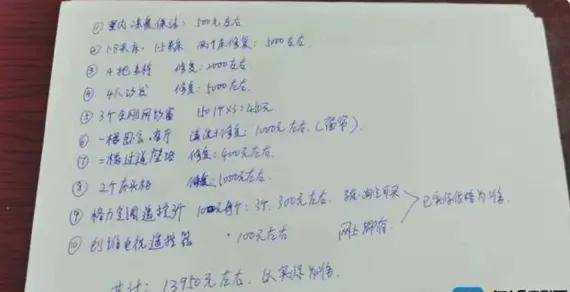 ① 室内深度保洁：500元左右
② 1.8米床，1.5米床 两个床修复：5000左右
③ 4把 修复：2000左右
④ 修复：5000左右
⑤ 3个金刚网纱窗 150 3=450元
⑥ 一楼 客厅 清洗+修复：1000元左右（窗帘）
⑦ 二楼过道壁 修复：400元左右
⑧ 2个床头柜 修复：1000元左右
⑨ 格力空调遥控 100元每个：3个，300元左右
⑩ 创维电视遥控器 100元左右 网上
已实际价格为准
共计：13950元左右，以实际为准。